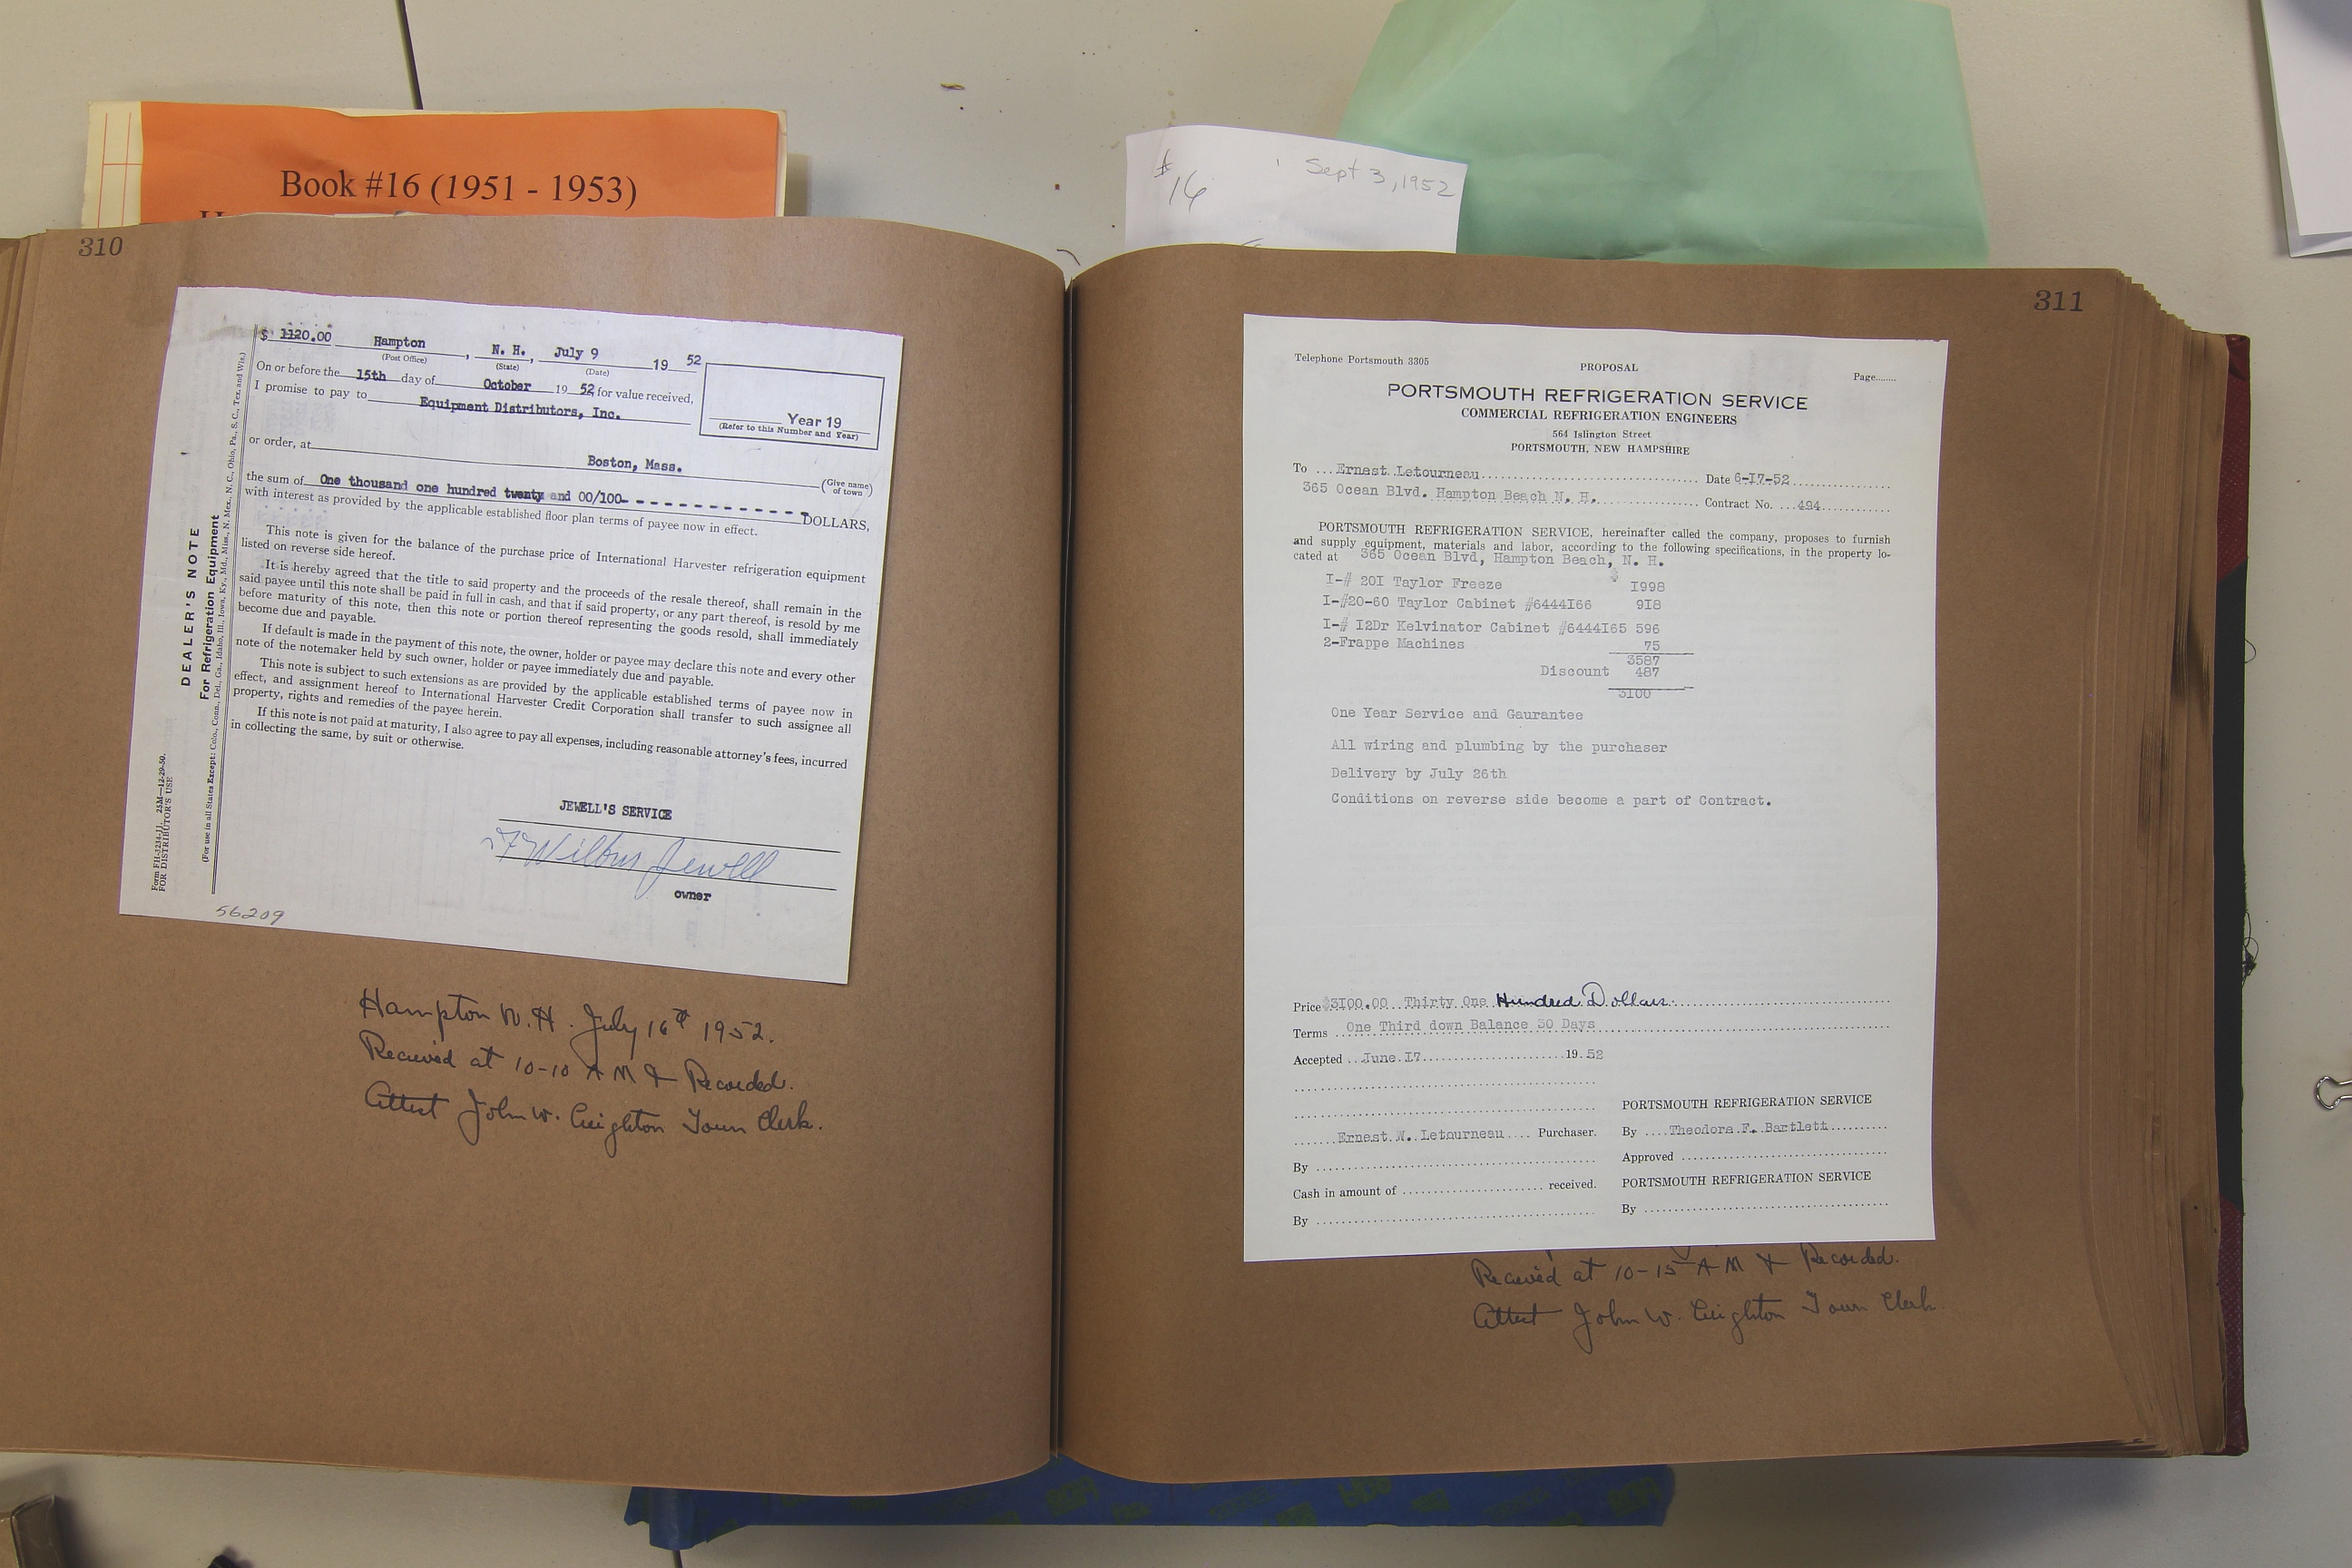 Book #16 (1951 - 1953)
#16
Sept 3, 1952
310
$ 1120.00 Hampton , N. H. , July 9 19 52
(Post Office) (State) (Date)
On or before the 15th day of October 19 52 for value received,
I promise to pay to Equipment Distributors, Inc.
Year 19
(Refer to this Number and Year)
or order, at Boston, Mass. (Give name of town)
the sum of One thousand one hundred twenty and 00/100- - - - - - - - - - - - - DOLLARS,
with interest as provided by the applicable established floor plan terms of payee now in effect.
This note is given for the balance of the purchase price of International Harvester refrigeration equipment
listed on reverse side hereof.
It is hereby agreed that the title to said property and the proceeds of the resale thereof, shall remain in the
said payee until this note shall be paid in full in cash, and that if said property, or any part thereof, is resold by me
before maturity of this note, then this note or portion thereof representing the goods resold, shall immediately
become due and payable.
If default is made in the payment of this note, the owner, holder or payee may declare this note and every other
note of the notemaker held by such owner, holder or payee immediately due and payable.
This note is subject to such extensions as are provided by the applicable established terms of payee now in
effect, and assignment hereof to International Harvester Credit Corporation shall transfer to such assignee all
property, rights and remedies of the payee herein.
If this note is not paid at maturity, I also agree to pay all expenses, including reasonable attorney's fees, incurred
in collecting the same, by suit or otherwise.
JEWELL'S SERVICE
F Wilbur Jewell
owner
DEALER'S NOTE
For Refrigeration Equipment
(For use in all States Except: Colo., Conn., Del., Ga., Idaho, Ill., Iowa, Ky., Md., Miss., N. Mex., N. C., Ohio, Pa., S. C., Tex. and Wis.)
Form FH-3234-11. 25M—12-29-50.
FOR DISTRIBUTOR'S USE
56209
Hampton N. H. July 16th 1952.
Recieved at 10-10 A M & Recorded.
Attest John W. Creighton Town Clerk.
311
Telephone Portsmouth 3305
PROPOSAL
Page........
PORTSMOUTH REFRIGERATION SERVICE
COMMERCIAL REFRIGERATION ENGINEERS
564 Islington Street
PORTSMOUTH, NEW HAMPSHIRE
To ... Ernest Letourneau Date 6-I7-52
365 Ocean Blvd. Hampton Beach N. H. Contract No. ...494
PORTSMOUTH REFRIGERATION SERVICE, hereinafter called the company, proposes to furnish
and supply equipment, materials and labor, according to the following specifications, in the property lo-
cated at 365 Ocean Blvd, Hampton Beach, N. H.
I-# 20I Taylor Freeze I998
I-#20-60 Taylor Cabinet #6444I66 9I8
I-# I2Dr Kelvinator Cabinet #6444I65 596
2-Frappe Machines 75
3587
Discount 487
3I00
One Year Service and Gaurantee
All wiring and plumbing by the purchaser
Delivery by July 26th
Conditions on reverse side become a part of Contract.
Price $3I00.00 Thirty One Hundred Dollars
Terms One Third down Balance 30 Days
Accepted June I7 19 52
PORTSMOUTH REFRIGERATION SERVICE
Ernest W. Letourneau Purchaser. By Theodora F. Bartlett
By Approved
Cash in amount of received. PORTSMOUTH REFRIGERATION SERVICE
By By
Recieved at 10-15 A M & Recorded.
Attest John W. Creighton Town Clerk